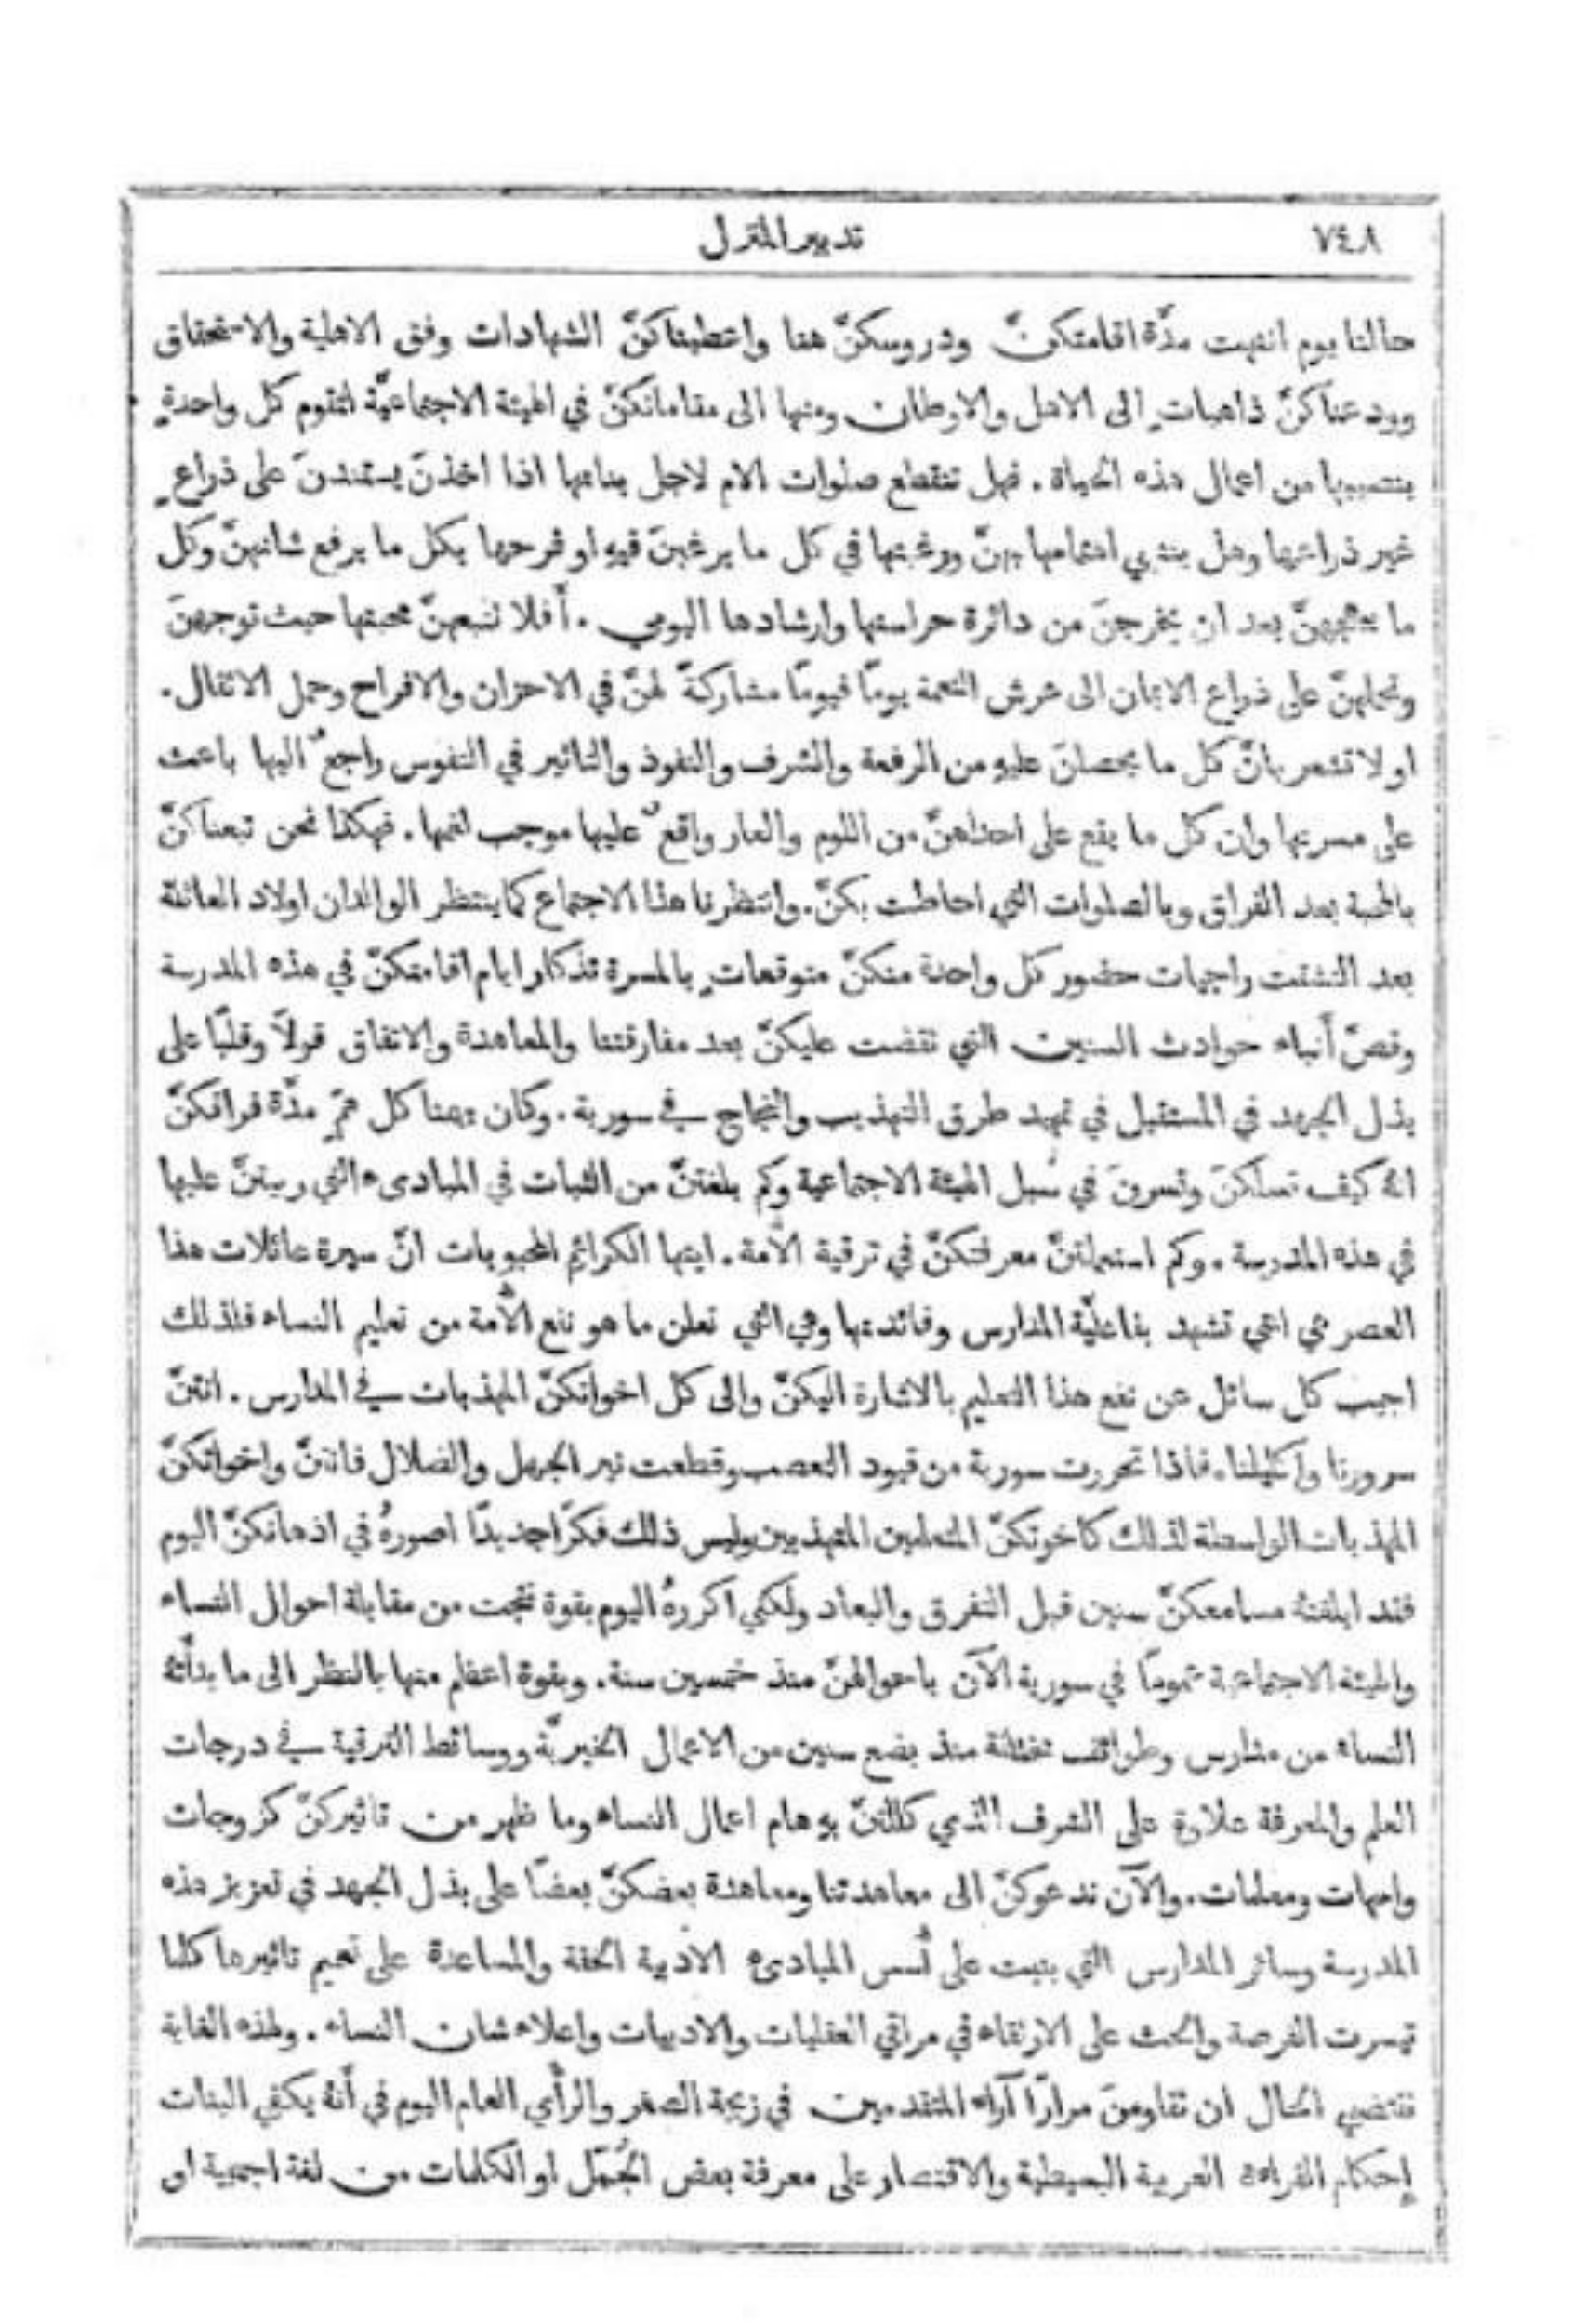 ٧٤٨
تدبير المنزل
حالنا يوم انتهت مدَّة اقامتكنَّ ودروسكنَّ هنا واعطيناكنَّ الشهادات وفق الاهلية والاستحقاق
وودعناكنَّ ذاهباتٍ الى الاهل والاوطان ومنها الى مقاماتكنَّ في الهيئة الاجتماعيَّة لتقوم كل واحدةٍ
بنصيبها من اعمال هذه الحياة . فهل تنقطع صلوات الام لاجل بناتها اذا اخذنَ يستندنَ على ذراعٍ
غير ذراعها وهل ينتهي اهتمامها بهنَّ ورغبتها في كل ما يرغبنَ فيهِ او فرحها بكل ما يرفع شانهنَّ وكل
ما يبهجهنَّ بعد ان يخرجنَ من دائرة حراستها وارشادها اليومي . أفلا تتبعهنَّ محبتها حيث توجهنَ
وتحملهنَّ على ذراع الايمان الى عرش النعمة يومًا فيومًا مشاركةً لهنَّ في الاحزان والافراح وحمل الاثقال .
او لا تشعر بانَّ كل ما يحصلنَ عليهِ من الرفعة والشرف والنفوذ والتاثير في النفوس راجعٌ اليها باعث
على مسرتها وان كل ما يقع على احداهنَّ من اللوم والعار واقعٌ عليها موجب لغمها . فهكذا نحن تبعناكنَّ
بالمحبة بعد الفراق وبالصلوات التي احاطت بكنَّ . وانتظرنا هذا الاجتماع كما ينتظر الوالدان اولاد العائلة
بعد التشتت راجيات حضور كل واحدة منكنَّ متوقعاتٍ بالمسرة تذكار ايام اقامتكنَّ في هذه المدرسة
وقصَّ أنباء حوادث السنين التي تقضت عليكنَّ بعد مفارقتنا والمعاهدة والاتفاق قولًا وقلبًا على
بذل الجهد في المستقبل في تمهيد طرق التهذيب والنجاح في سورية . وكان يهمنا كل همّ مدَّة فراقكنَّ
انهُ كيف تسلكنَ وتسرنَ في سُبل الهيئة الاجتماعية وكم بلغتنَّ من الثبات في المبادىء التي ربيتنَّ عليها
في هذه المدرسة . وكم استعملتنَّ معرفتكنَّ في ترقية الأمة . ايتها الكرائم المحبوبات انَّ سيرة عائلات هذا
العصر هي التي تشهد بفاعليَّة المدارس وفائدتها وهي التي تعلن ما هو نفع الأمة من تعليم النساء فلذلك
اجيب كل سائل عن نفع هذا التعليم بالاشارة اليكنَّ والى كل اخواتكنَّ المهذبات في المدارس . انتنَّ
سرورنا واكليلنا . فاذا تحررت سورية من قيود التعصب وقطعت نير الجهل والضلال فانتنَّ واخواتكنَّ
المهذبات الواسطة لذلك كاخوتكنَّ المتعلمين المتهذبين وليس ذلك فكرًا جديدًا اصورهُ في اذهانكنَّ اليوم
فقد ابلغتهُ مسامعكنَّ سنين قبل التفرق والبعاد ولكني اكررهُ اليوم بقوة نتجت من مقابلة احوال النساء
والهيئة الاجتماعية عمومًا في سورية الآن باحوالهنَّ منذ خمسين سنة . وبقوة اعظم منها بالنظر الى ما بدأتهُ
النساء من مدارس وطوائف مختلفة منذ بضع سنين من الاعمال الخيريَّة ووسائط الترقية في درجات
العلم والمعرفة علاوة على الشرف الذي كللتنَّ بهِ هام اعمال النساء وما ظهر من تاثيركنَّ كزوجات
وامهات ومعلمات . والآن ندعوكنَّ الى معاهدتنا ومعاهدة بعضكنَّ بعضًا على بذل الجهد في تعزيز هذه
المدرسة وسائر المدارس التي بنيت على أسس المبادىء الادبية الحقة والمساعدة على تعميم تاثيرها كلما
تيسرت الفرصة والحث على الارتقاء في مراقي العقليات والادبيات واعلاء شان النساء . ولهذه الغاية
تقتضي الحال ان تقاومنَ مرارًا آراء المتقدمين في زيجة الصغر والرأي العام اليوم في أنهُ يكفي البنات
إحكام القراءة العربية البسيطة والاقتصار على معرفة بعض الجُمَل او الكلمات من لغة اجنبية او